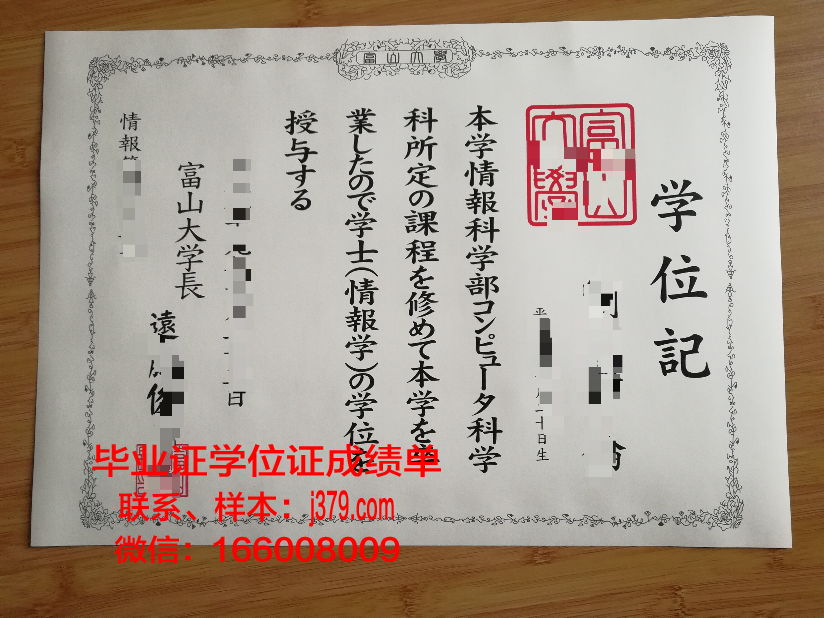 富山大學
学位記
富山大學
平
十日生
本学情報科学部コンピュータ科学
科所定の課程を修めて本学を卒
業したので学士(情報学)の学位を
授与する
日
富山大学長
遠
情報第
毕业证学位证成绩单
联系、样本：j379.com
微信：166008009